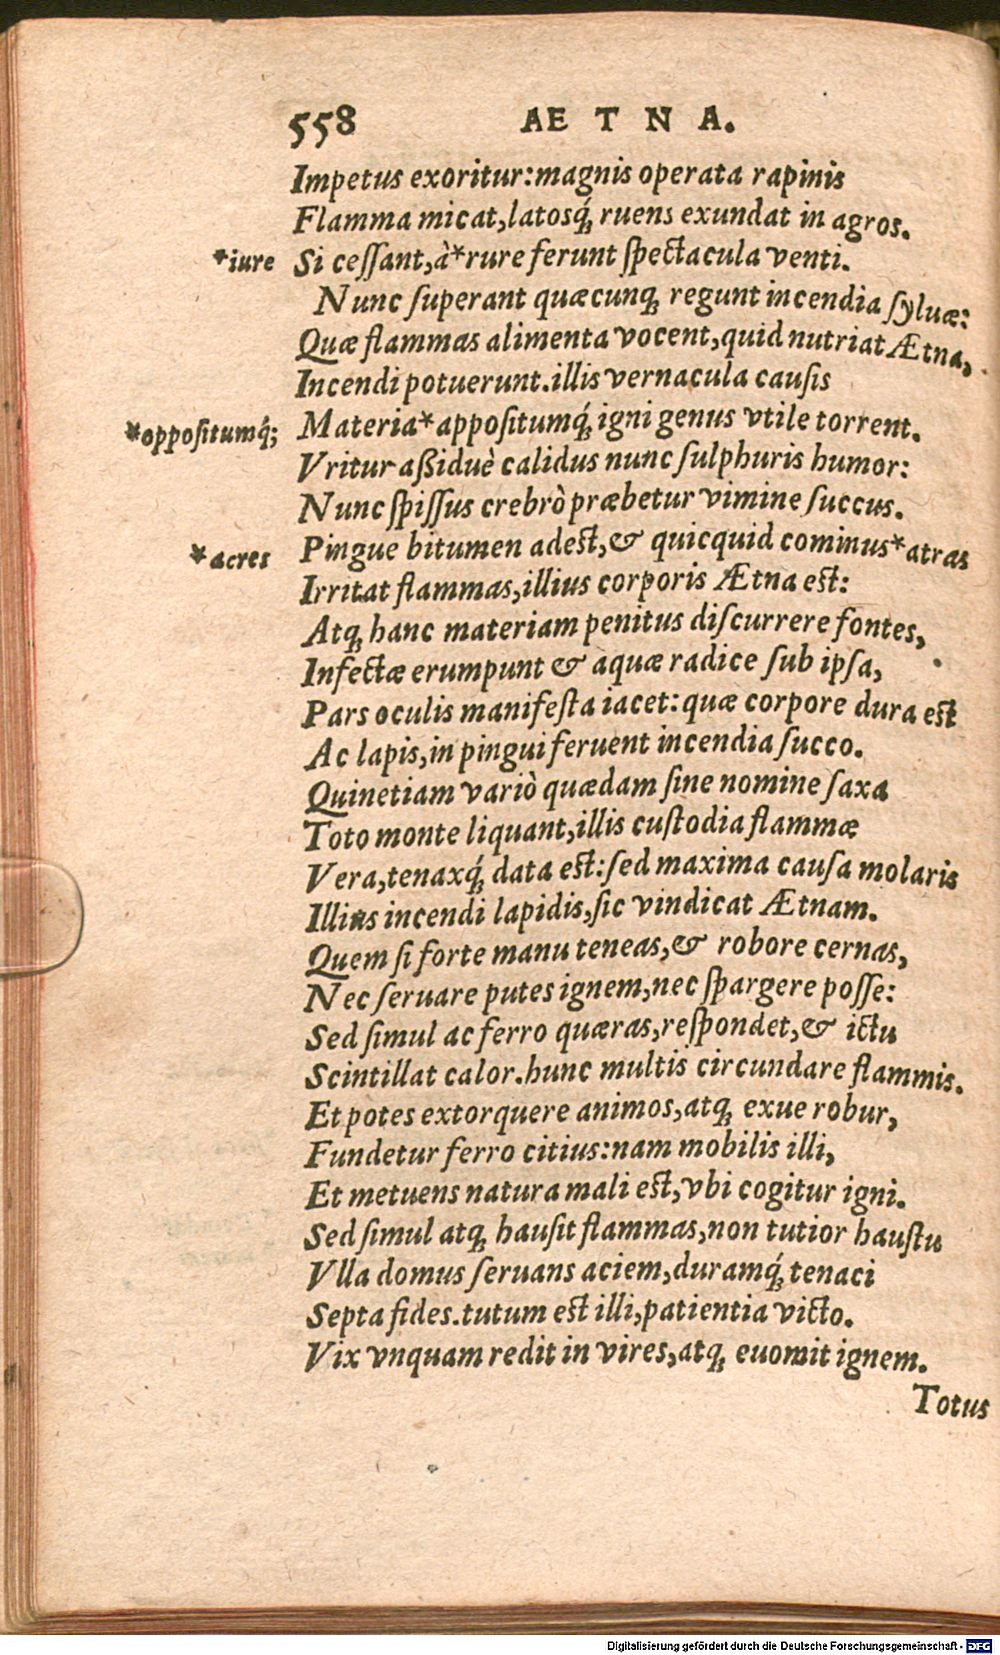 558 AETNA.
Impetus exoritur: magnis operata rapinis
Flamma micat, latosq́; ruens exundat in agros.
*iure Si ceſſant, à *rure ferunt ſpectacula venti.
Nunc ſuperant quæcunq; regunt incendia ſyluæ:
Quæ flammas alimenta vocent, quid nutriat Ætna,
Incendi potuerunt. illis vernacula cauſis
*oppoſitumq́; Materia *appoſitumq́; igni genus vtile torrent.
Vritur aßiduè calidus nunc ſulphuris humor:
Nunc ſpiſſus crebrò præbetur vimine ſuccus.
*acres Pingue bitumen adest, & quicquid cominus *atras
Irritat flammas, illius corporis Ætna est:
Atq; hanc materiam penitus diſcurrere fontes,
Infectæ erumpunt & aquæ radice ſub ipſa,
Pars oculis manifeſta iacet: quæ corpore dura est
Ac lapis, in pingui feruent incendia ſucco.
Quinetiam variò quædam ſine nomine ſaxa
Toto monte liquant, illis cuſtodia flammæ
Vera, tenaxq́; data est: ſed maxima cauſa molaris
Illius incendi lapidis, ſic vindicat Ætnam.
Quem ſi forte manu teneas, & robore cernas,
Nec ſeruare putes ignem, nec ſpargere poſſe:
Sed ſimul ac ferro quæras, reſpondet, & ictu
Scintillat calor. hunc multis circundare flammis.
Et potes extorquere animos, atq; exue robur,
Fundetur ferro citius: nam mobilis illi,
Et metuens natura mali est, vbi cogitur igni.
Sed ſimul atq; hauſit flammas, non tutior hauſtu
Vlla domus ſeruans aciem, duramq́; tenaci
Septa fides. tutum est illi, patientia victo.
Vix vnquam redit in vires, atq; euomit ignem.
Totus
Digitalisierung gefördert durch die Deutsche Forschungsgemeinschaft - DFG